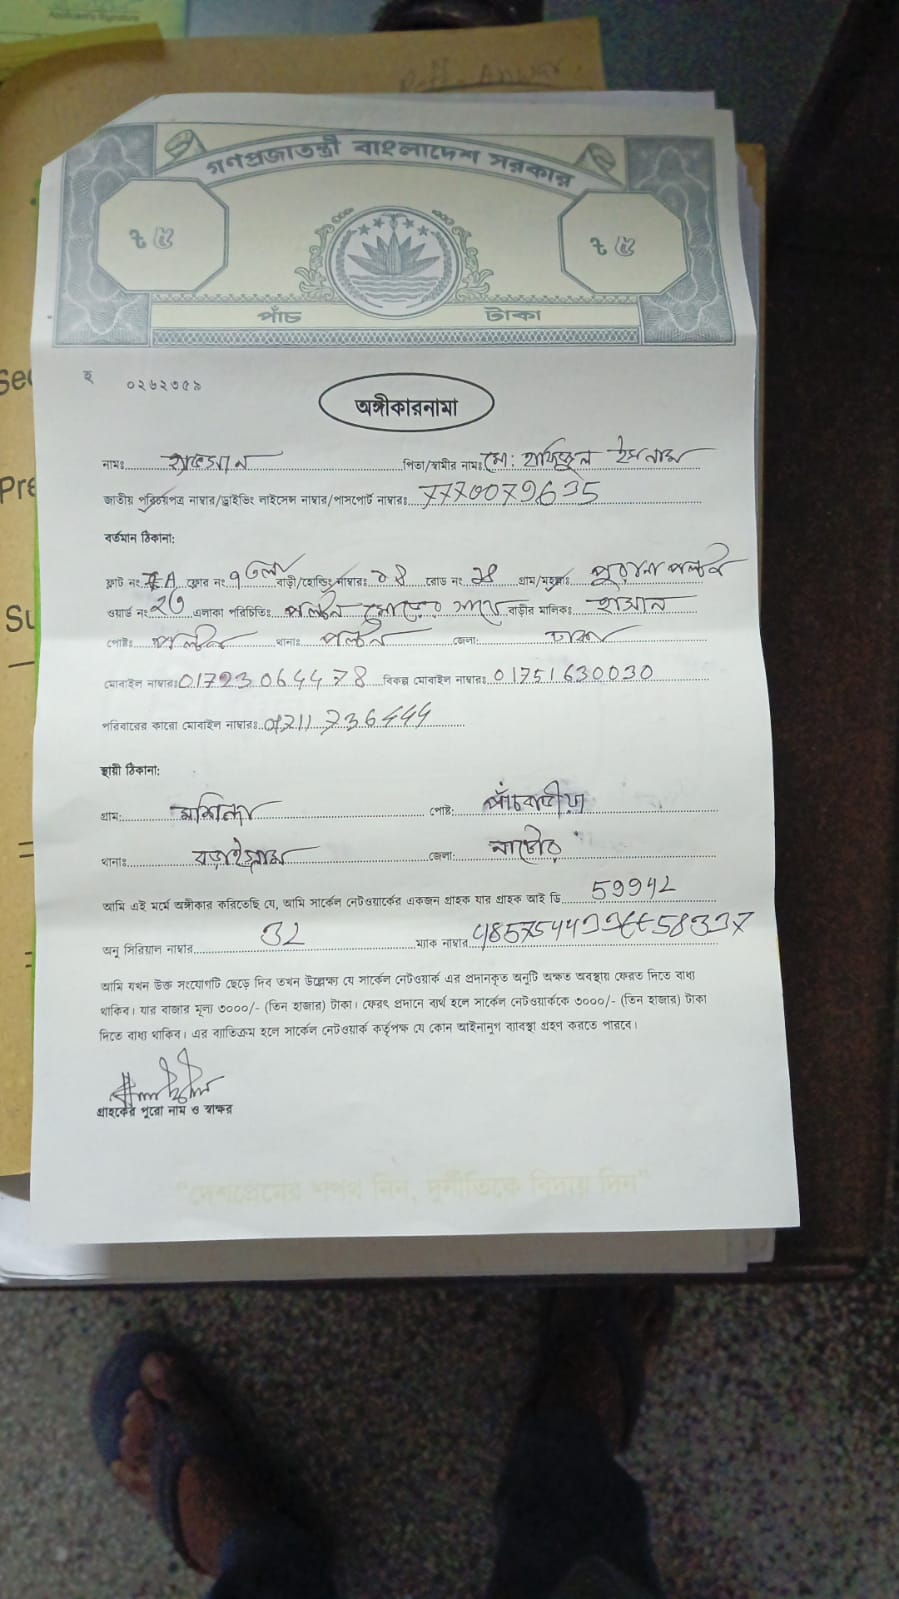 Applicant's Signature
গণপ্রজাতন্ত্রী বাংলাদেশ সরকার
৳ ৫ ৳ ৫
পাঁচ টাকা
হ ০২৬২৩৫৯
অঙ্গীকারনামা
নামঃ পিতা/স্বামীর নামঃ মো: হাফিজুল ইসলাম
জাতীয় পরিচয়পত্র নাম্বার/ড্রাইভিং লাইসেন্স নাম্বার/পাসপোর্ট নাম্বারঃ 7770079635
বর্তমান ঠিকানা:
ফ্লাট নং A ফ্লোর নং ৭তলা বাড়ী/হোল্ডিং নাম্বারঃ রোড নং গ্রাম/মহল্লাঃ পুরানা পল্টন
ওয়ার্ড নং এলাকা পরিচিতিঃ পল্টন মোড়ের সাথে বাড়ীর মালিকঃ
পোষ্টঃ পল্টন থানাঃ পল্টন জেলা: ঢাকা
মোবাইল নাম্বারঃ 01723064478 বিকল্প মোবাইল নাম্বারঃ 01751630030
পরিবারের কারো মোবাইল নাম্বারঃ 01711736444
স্থায়ী ঠিকানা:
গ্রাম: মশিন্দা পোষ্ট:
থানাঃ বড়াইগ্রাম জেলা: নাটোর
আমি এই মর্মে অঙ্গীকার করিতেছি যে, আমি সার্কেল নেটওয়ার্কের একজন গ্রাহক যার গ্রাহক আই ডি 59942
অনু সিরিয়াল নাম্বার 32 ম্যাক নাম্বার
আমি যখন উক্ত সংযোগটি ছেড়ে দিব তখন উল্লেক্ষ্য যে সার্কেল নেটওয়ার্ক এর প্রদানকৃত অনুটি অক্ষত অবস্থায় ফেরত দিতে বাধ্য
থাকিব। যার বাজার মূল্য ৩০০০/- (তিন হাজার) টাকা। ফেরৎ প্রদানে ব্যর্থ হলে সার্কেল নেটওয়ার্ককে ৩০০০/- (তিন হাজার) টাকা
দিতে বাধ্য থাকিব। এর ব্যতিক্রম হলে সার্কেল নেটওয়ার্ক কর্তৃপক্ষ যে কোন আইনানুগ ব্যাবস্থা গ্রহণ করতে পারবে।
গ্রাহকের পুরো নাম ও স্বাক্ষর
"দেশপ্রেমের শপথ নিন, দুর্নীতিকে বিদায় দিন"